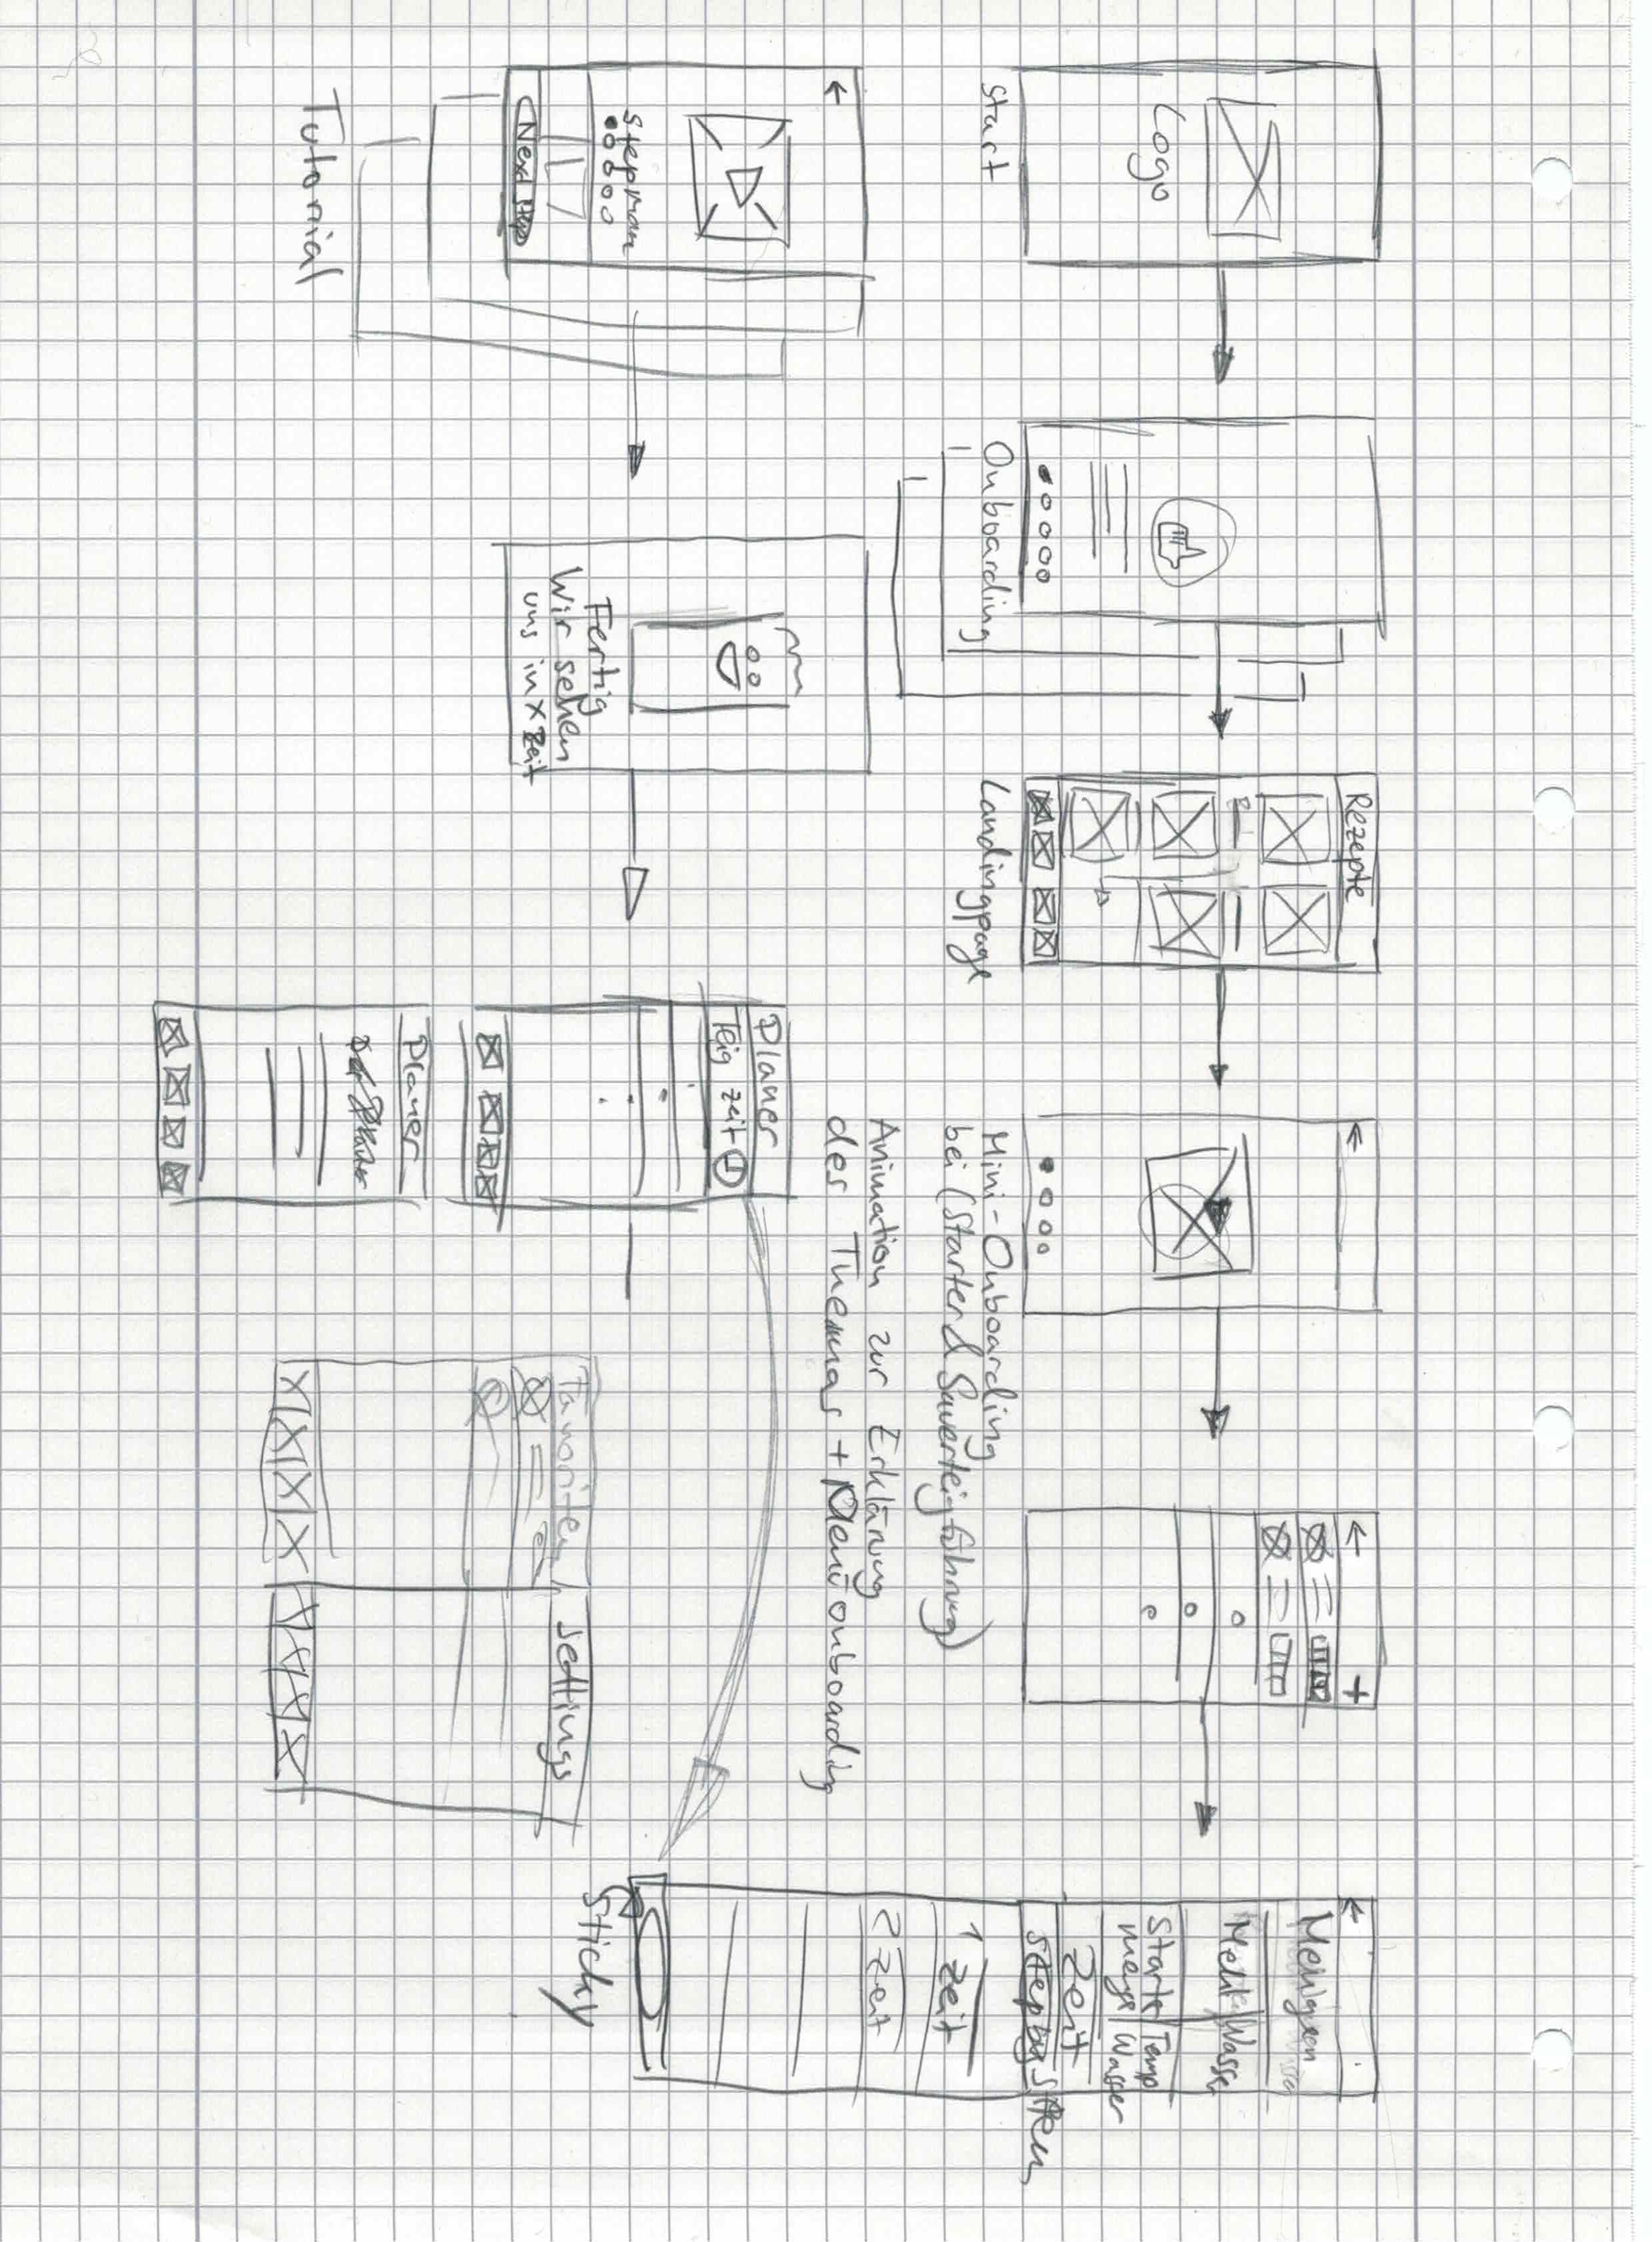 Logo
Start
Onboarding
Rezepte
Landingpage
Mini-Onboarding
bei (Starter & Sauerteigführung)
Animation zur Erklärung
des Themas + Menüonboarding
Mengen
Mehl Wasser
Starter Temp
menge Wasser
Zeit
step by step
1 Zeit
2 Zeit
Sticky
Next Step
Tutorial
Fertig
Wir sehen
uns in X Zeit
Planer
Teig Zeit
Planer
Favoriten
Settings